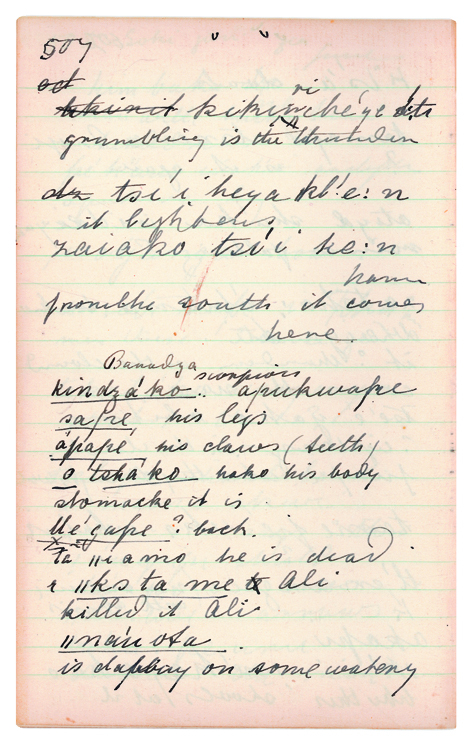 507
kikiriche'ye
grumbling is the thunder
dz tsi'i heya kl!e:n
it lightens
zaiako tsi'i ke:n
from the south it comes
here.
Banadza scorpions
kindza'ko apukwape
sape his legs
apape his claws (teeth)
o tshako hako his body
stomacke it is
? back.
ta ııiamo he is dead
ııks ta me Ali
killed it Ali
ıınánota
is on some watery